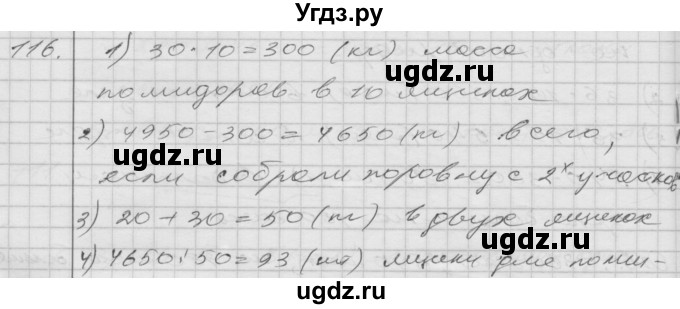 Угдз.ру
116. 1) 30·10=300 (кг) масса
ugdz.ru ugdz.ru
помидоров в 10 ящиках
2) 4950-300=4650(кг) всего,
ugdz.ru
если собрали поровну с 2х участков
3) 20+30=50(кг) в двух ящиках
ugdz.ru ugdz.ru
4) 4650:50=93 (шт) ящики для поми-
ugdz.ru